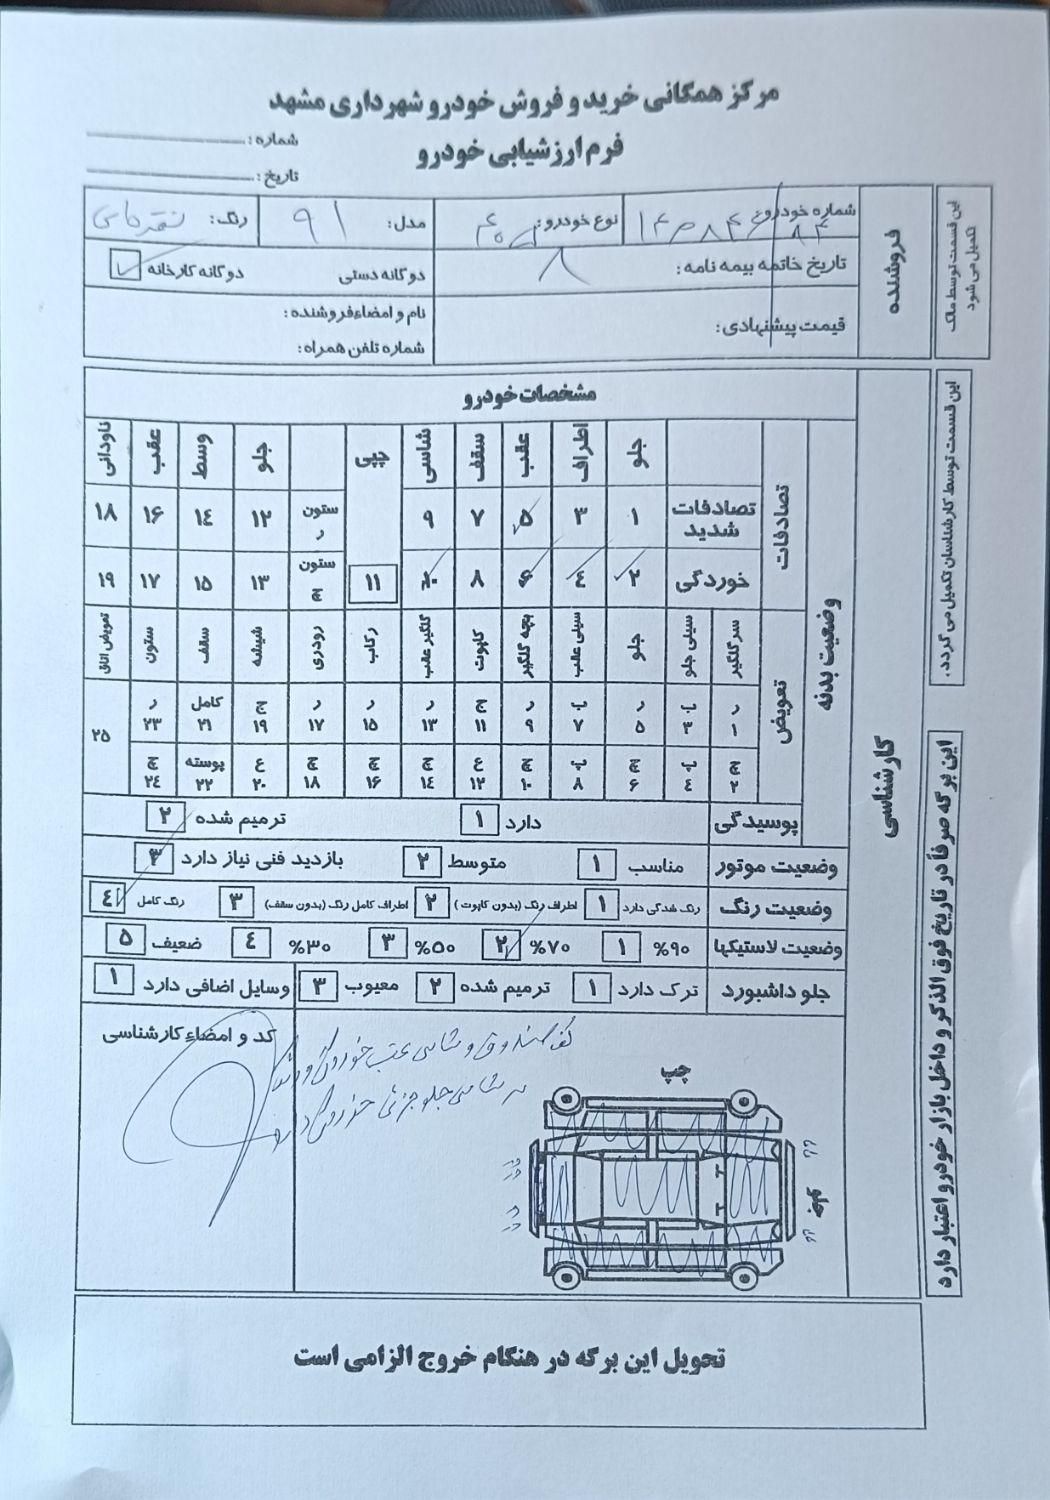 مرکز همگانی خرید و فروش خودرو شهرداری مشهد
فرم ارزشیابی خودرو
شماره :
تاریخ :
این قسمت توسط مالک تکمیل می شود
فروشنده
شماره خودرو:
نوع خودرو:
مدل: ۹۱
رنگ: نقره ای
تاریخ خاتمه بیمه نامه: ۸
دوگانه دستی
دوگانه کارخانه
قیمت پیشنهادی:
نام و امضاءفروشنده :
شماره تلفن همراه:
این قسمت توسط کارشناسان تکمیل می گردد.
کارشناسی
مشخصات خودرو
وضعیت بدنه
تصادفات
جلو اطراف عقب سقف شاسی پپی جلو وسط عقب ناودانی
تصادفات شدید ۱ ۳ ۵ ۷ ۹ ستون ر ۱۲ ۱٤ ۱۶ ۱۸
خوردگی ۲ ٤ ۶ ۸ ۱۰ ۱۱ ستون چ ۱۳ ۱۵ ۱۷ ۱۹
تعویض
سرگلگیر سیلی جلو جلو سیلی عقب بچه گلگیر کاپوت گلگیر عقب رکاب رودری شیشه سقف ستون تعویض اتاق
ر ۱ ر ۵ ر ۹ ج ۱۱ ر ۱۳ ر ۱۵ ر ۱۷ ج ۱۹ کامل ۲۱ ر ۲۳ ۲۵
چ ۲ چ ۶ چ ۱۰ ع ۱۲ چ ۱٤ چ ۱۶ چ ۱۸ ع ۲۰ پوسته ۲۲ چ ۲٤
پوسیدگی دارد ۱ ترمیم شده ۲
وضعیت موتور مناسب ۱ متوسط ۲ بازدید فنی نیاز دارد ۳
وضعیت رنگ رنگ شدگی دارد ۱ اطراف رنگ (بدون کاپوت) ۲ اطراف کامل رنگ (بدون سقف) ۳ رنگ کامل ٤
وضعیت لاستیکها ۹۰% ۱ ۷۰% ۲ ۵۰% ۳ ۳۰% ٤ ضعیف ۵
جلو داشبورد ترک دارد ۱ ترمیم شده ۲ معیوب ۳ وسایل اضافی دارد ۱
کف صندوق و شاسی عقب خوردگی و رنگ
سر شاسی جلو جزئی خوردگی دارد
کد و امضاء کارشناسی
چپ
این برگه صرفاً در تاریخ فوق الذکر و داخل بازار خودرو اعتبار دارد
تحویل این برگه در هنگام خروج الزامی است